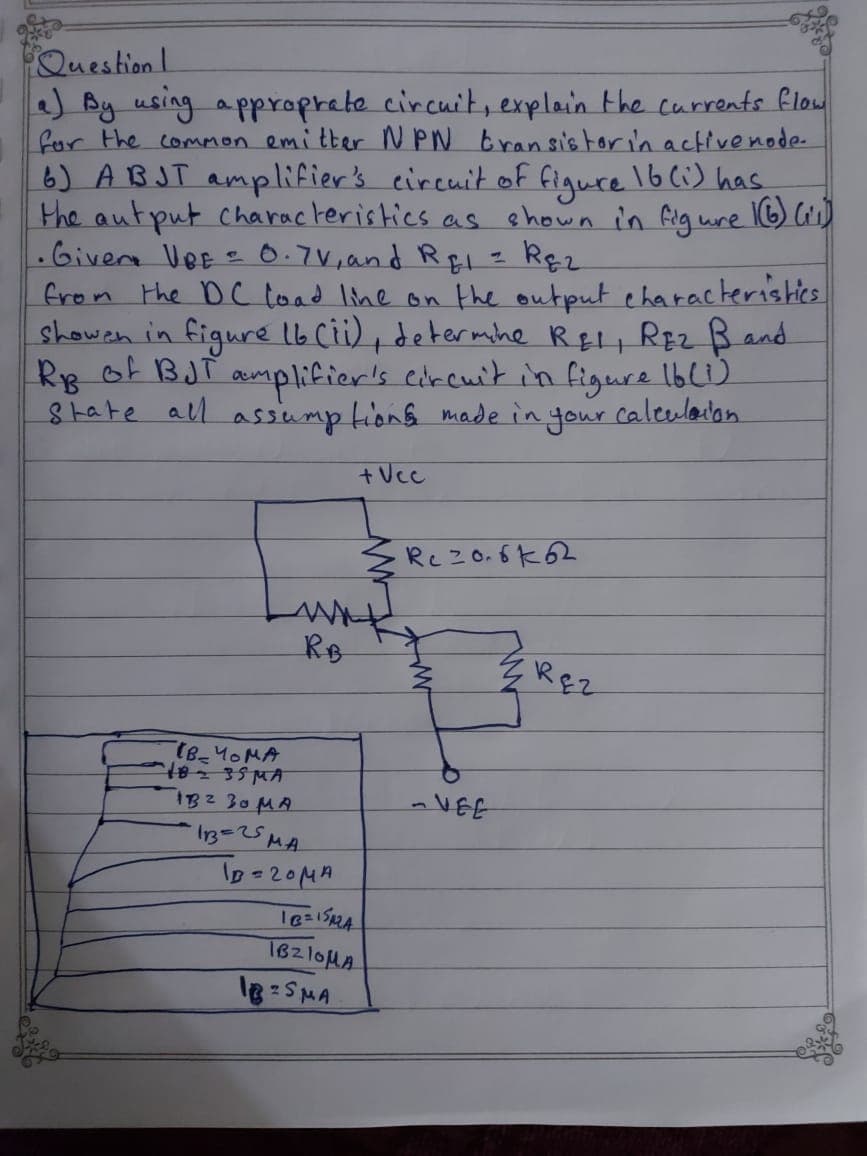 Question 1
a) By using approprate circuit, explain the currents flow
for the common emitter NPN transistor in active node.
b) A BJT amplifier's circuit of figure 1b(i) has
the output characteristics as shown in figure 1(b)(ii)
. Given VBE = 0.7V, and RE1 = RE2
from the DC load line on the output characteristics
showen in figure 1b(ii), determine RE1, RE2 β and
RB of BJT amplifier's circuit in figure 1b(i)
State all assumptions made in your calculaion
+Vcc
Rc=0.6kΩ
RB
RE2
IB=40MA
IB=35MA
IB=30MA
-VEE
IB=25MA
IB=20MA
IB=15MA
IB=10MA
IB=5MA